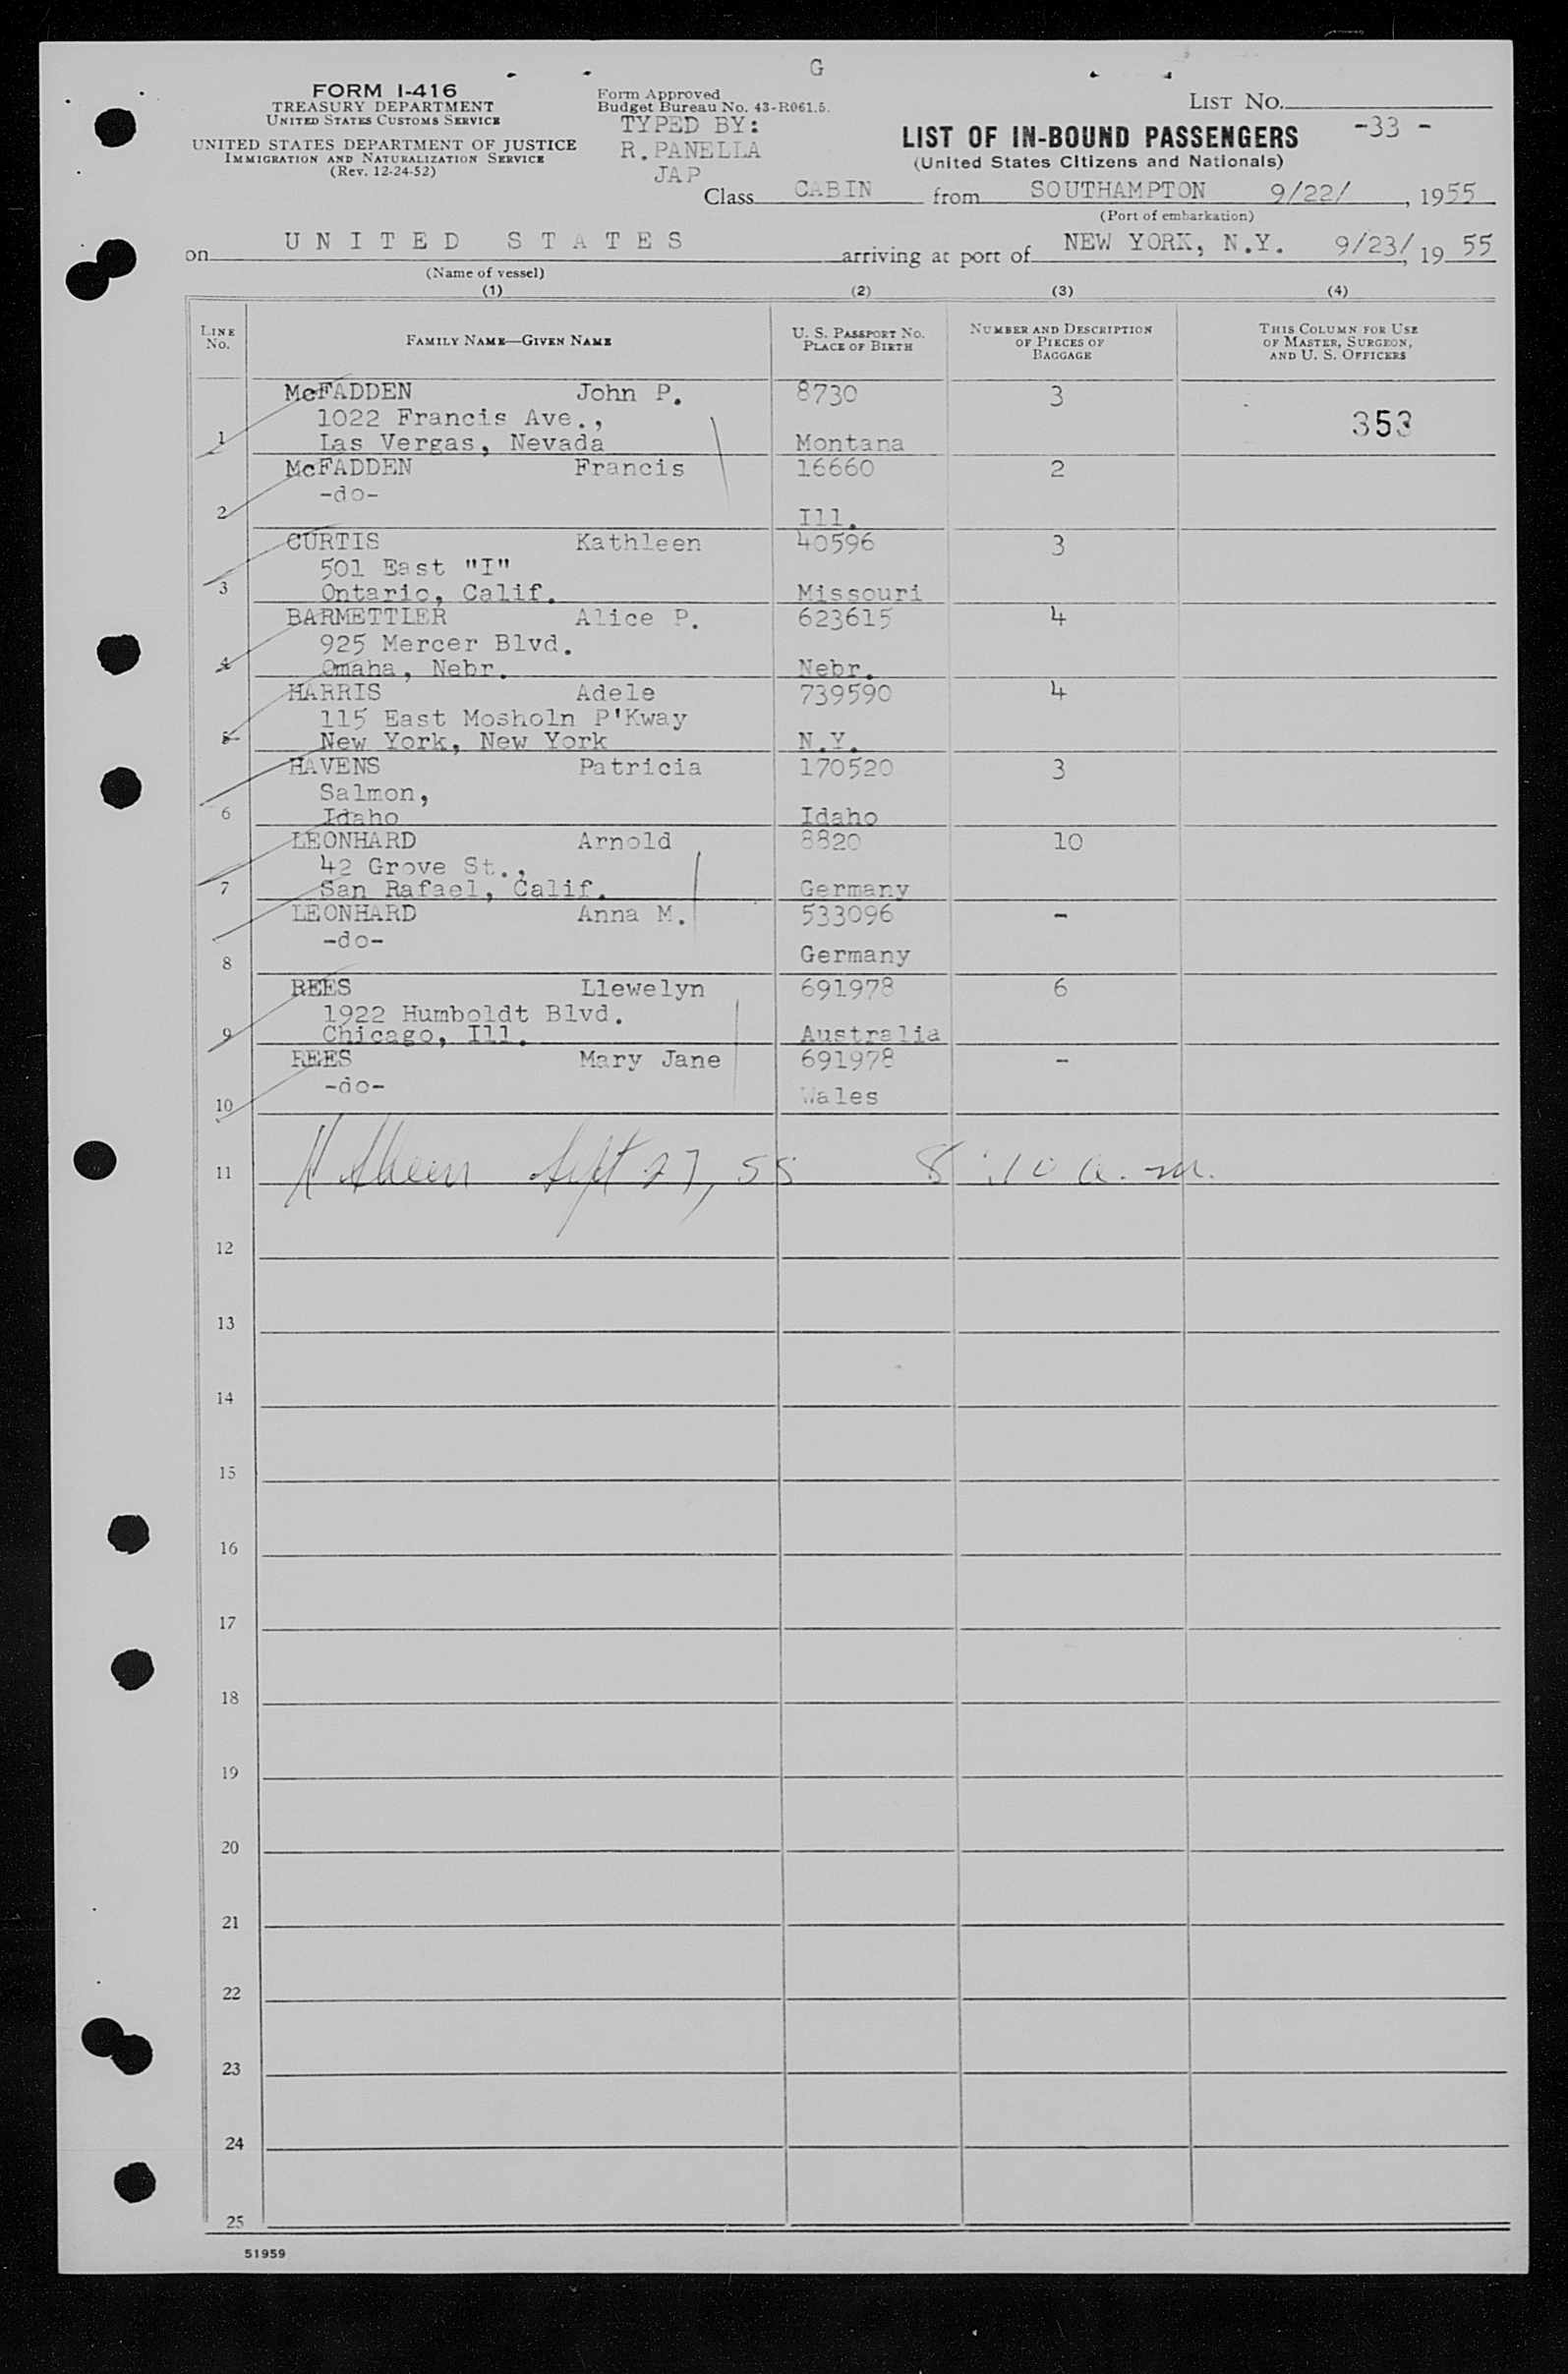 G
FORM I-416
TREASURY DEPARTMENT
UNITED STATES CUSTOMS SERVICE
UNITED STATES DEPARTMENT OF JUSTICE
IMMIGRATION AND NATURALIZATION SERVICE
(Rev. 12-24-52)
Form Approved
Budget Bureau No. 43-R061.5.
TYPED BY:
R. PANELLA
JAP
LIST NO.
-33 -
LIST OF IN-BOUND PASSENGERS
(United States Citizens and Nationals)
Class CABIN from SOUTHAMPTON 9/22/, 1955
(Port of embarkation)
on UNITED STATES arriving at port of NEW YORK, N.Y. 9/23/, 19 55
(Name of vessel)
(1) (2) (3) (4)
LINE NO. FAMILY NAME—GIVEN NAME U. S. PASSPORT NO. PLACE OF BIRTH NUMBER AND DESCRIPTION OF PIECES OF BAGGAGE THIS COLUMN FOR USE OF MASTER, SURGEON, AND U. S. OFFICERS
McFADDEN John P. 8730 3
1022 Francis Ave., 353
1 Las Vergas, Nevada Montana
McFADDEN Francis 16660 2
-do-
2 Ill.
CURTIS Kathleen 40596 3
501 East "I"
3 Ontario, Calif. Missouri
BARMETTLER Alice P. 623615 4
925 Mercer Blvd.
4 Omaha, Nebr. Nebr.
HARRIS Adele 739590 4
115 East Mosholn P'Kway
5 New York, New York N.Y.
HAVENS Patricia 170520 3
Salmon,
6 Idaho Idaho
LEONHARD Arnold 8820 10
42 Grove St.,
7 San Rafael, Calif. Germany
LEONHARD Anna M. 533096 -
-do-
8 Germany
REES Llewelyn 691978 6
1922 Humboldt Blvd.
9 Chicago, Ill. Australia
REES Mary Jane 691978 -
-do-
10 Wales
11 Sept 27, 55 8:10 a.m.
12
13
14
15
16
17
18
19
20
21
22
23
24
25
51959